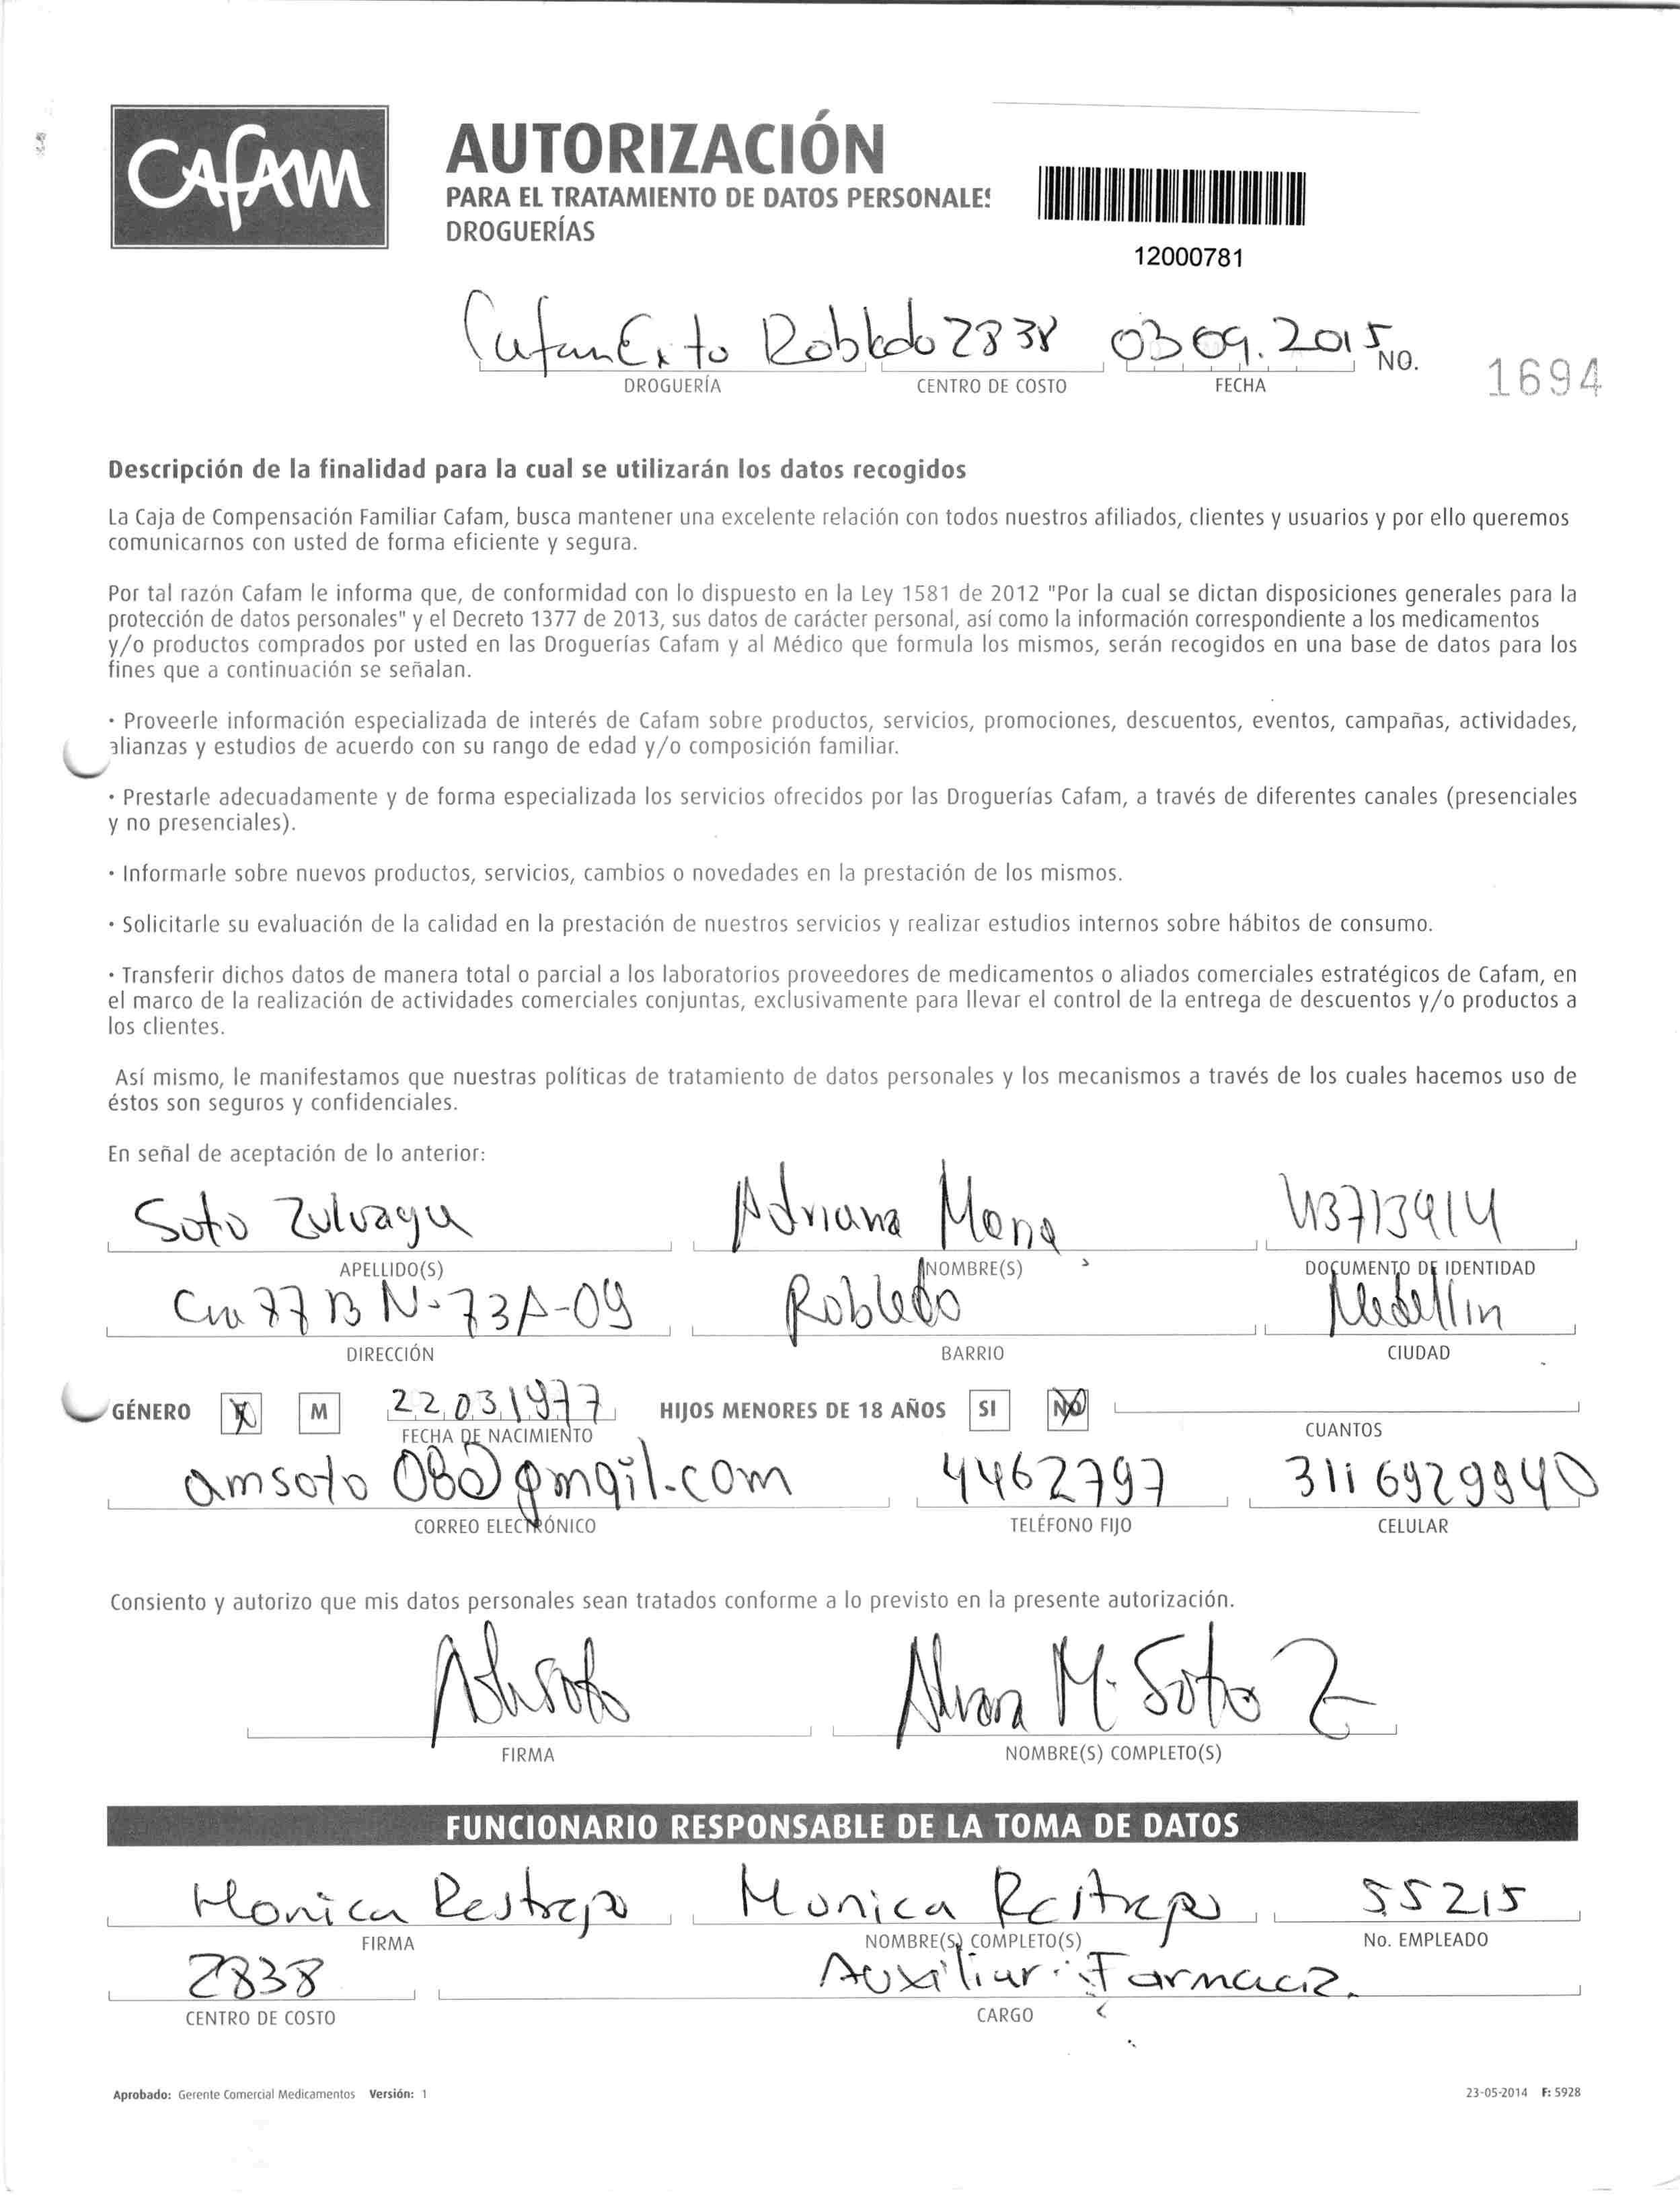 CAFAM
AUTORIZACIÓN
PARA EL TRATAMIENTO DE DATOS PERSONALES
DROGUERÍAS
12000781
Cafam Exito Robledo 2838 03 09. 2015 NO. 1694
DROGUERÍA CENTRO DE COSTO FECHA
Descripción de la finalidad para la cual se utilizarán los datos recogidos
La Caja de Compensación Familiar Cafam, busca mantener una excelente relación con todos nuestros afiliados, clientes y usuarios y por ello queremos
comunicarnos con usted de forma eficiente y segura.
Por tal razón Cafam le informa que, de conformidad con lo dispuesto en la Ley 1581 de 2012 "Por la cual se dictan disposiciones generales para la
protección de datos personales" y el Decreto 1377 de 2013, sus datos de carácter personal, así como la información correspondiente a los medicamentos
y/o productos comprados por usted en las Droguerías Cafam y al Médico que formula los mismos, serán recogidos en una base de datos para los
fines que a continuación se señalan.
· Proveerle información especializada de interés de Cafam sobre productos, servicios, promociones, descuentos, eventos, campañas, actividades,
alianzas y estudios de acuerdo con su rango de edad y/o composición familiar.
· Prestarle adecuadamente y de forma especializada los servicios ofrecidos por las Droguerías Cafam, a través de diferentes canales (presenciales
y no presenciales).
· Informarle sobre nuevos productos, servicios, cambios o novedades en la prestación de los mismos.
· Solicitarle su evaluación de la calidad en la prestación de nuestros servicios y realizar estudios internos sobre hábitos de consumo.
· Transferir dichos datos de manera total o parcial a los laboratorios proveedores de medicamentos o aliados comerciales estratégicos de Cafam, en
el marco de la realización de actividades comerciales conjuntas, exclusivamente para llevar el control de la entrega de descuentos y/o productos a
los clientes.
Así mismo, le manifestamos que nuestras políticas de tratamiento de datos personales y los mecanismos a través de los cuales hacemos uso de
éstos son seguros y confidenciales.
En señal de aceptación de lo anterior:
Soto Zuluaga Adriana Maria 43713914
APELLIDO(S) NOMBRE(S) DOCUMENTO DE IDENTIDAD
Cra 77 B N-73A-09 Robledo Medellin
DIRECCIÓN BARRIO CIUDAD
GÉNERO X M 22 03 1977 HIJOS MENORES DE 18 AÑOS SI NO
FECHA DE NACIMIENTO CUANTOS
amsoto 08@gmail.com 4462797 3116929940
CORREO ELECTRÓNICO TELÉFONO FIJO CELULAR
Consiento y autorizo que mis datos personales sean tratados conforme a lo previsto en la presente autorización.
M. Soto Z
FIRMA NOMBRE(S) COMPLETO(S)
FUNCIONARIO RESPONSABLE DE LA TOMA DE DATOS
Monica Restrepo Monica Restrepo 55215
FIRMA NOMBRE(S) COMPLETO(S) No. EMPLEADO
2838 Auxiliar Farmacia.
CENTRO DE COSTO CARGO
Aprobado: Gerente Comercial Medicamentos Versión: 1 23-05-2014 F: 5928